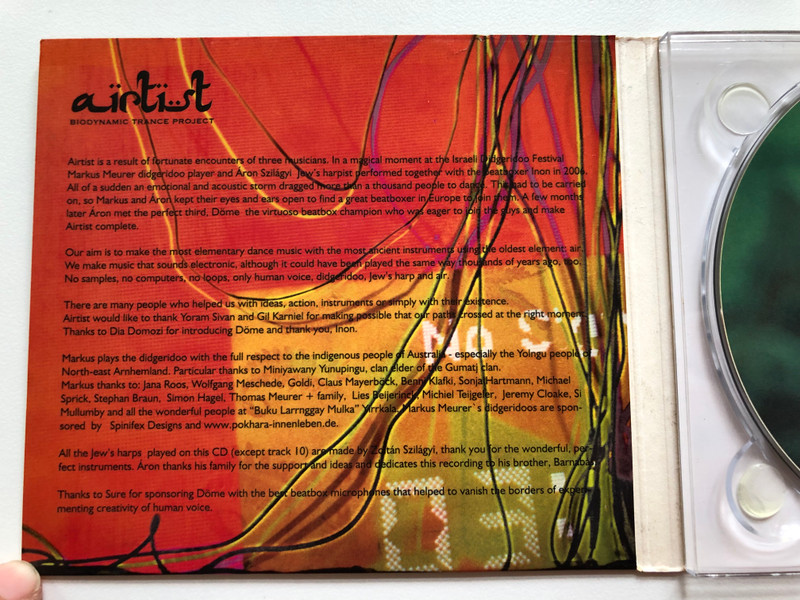 aïrtist
BIODYNAMIC TRANCE PROJECT
Airtist is a result of fortunate encounters of three musicians. In a magical moment at the Israeli Didgeridoo Festival
Markus Meurer didgeridoo player and Áron Szilágyi Jew's harpist performed together with the beatboxer Inon in 2006.
All of a sudden an emotional and acoustic storm dragged more than a thousand people to dance. This had to be carried
on, so Markus and Áron kept their eyes and ears open to find a great beatboxer in Europe to join them. A few months
later Áron met the perfect third, Döme the virtuoso beatbox champion who was eager to join the guys and make
Airtist complete.
Our aim is to make the most elementary dance music with the most ancient instruments using the oldest element: air.
We make music that sounds electronic, although it could have been played the same way thousands of years ago, too.
No samples, no computers, no loops, only human voice, didgeridoo, Jew's harp and air.
There are many people who helped us with ideas, action, instruments or simply with their existence.
Airtist would like to thank Yoram Sivan and Gil Karniel for making possible that our paths crossed at the right moment.
Thanks to Dia Domozi for introducing Döme and thank you, Inon.
Markus plays the didgeridoo with the full respect to the indigenous people of Australia - especially the Yolngu people of
North-east Arnhemland. Particular thanks to Miniyawany Yunupingu, clan elder of the Gumatj clan.
Markus thanks to: Jana Roos, Wolfgang Meschede, Goldi, Claus Mayerböck, Benni Klafki, Sonja Hartmann, Michael
Sprick, Stephan Braun, Simon Hagel, Thomas Meurer + family, Lies Beijerinck, Michiel Teijgeler, Jeremy Cloake, Si
Mullumby and all the wonderful people at "Buku Larrnggay Mulka" Yirrkala. Markus Meurer`s didgeridoos are spon-
sored by Spinifex Designs and www.pokhara-innenleben.de.
All the Jew's harps played on this CD (except track 10) are made by Zoltán Szilágyi, thank you for the wonderful, per-
fect instruments. Áron thanks his family for the support and ideas and dedicates this recording to his brother, Barnabás.
Thanks to Sure for sponsoring Döme with the best beatbox microphones that helped to vanish the borders of experi-
menting creativity of human voice.